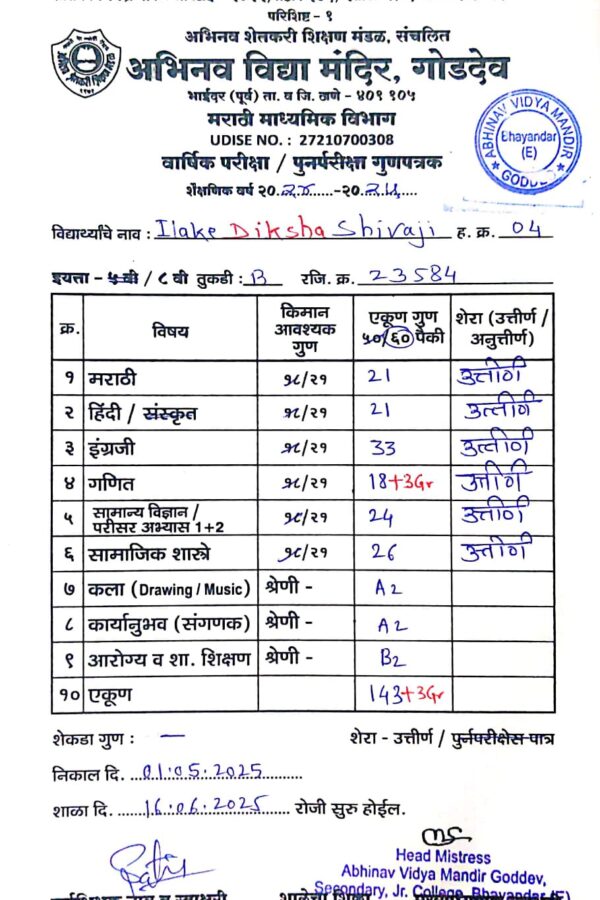 परिशिष्ट - १
अभिनव शेतकरी शिक्षण मंडळ, संचलित
अभिनव विद्या मंदिर, गोडदेव
भाईंदर (पूर्व) ता. व जि. ठाणे - ४०१ १०५
मराठी माध्यमिक विभाग
UDISE NO. : 27210700308
वार्षिक परीक्षा / पुनर्परीक्षा गुणपत्रक
ABHINAV VIDYA MANDIR
Bhayandar
(E)
GODDEV
शैक्षणिक वर्ष २०.२४......-२०.२५....
विद्यार्थ्यांचे नाव : Ilake Diksha Shivaji ह. क्र. 04
इयत्ता - ५ वी / ८ वी तुकडी : B रजि. क्र. 23584
क्र. विषय किमान आवश्यक गुण एकूण गुण ५०/६० पैकी शेरा (उत्तीर्ण / अनुत्तीर्ण)
१ मराठी १८/२१ 21 उत्तीर्ण
२ हिंदी / संस्कृत १८/२१ 21 उत्तीर्ण
३ इंग्रजी १८/२१ 33 उत्तीर्ण
४ गणित १८/२१ 18+3Gr उत्तीर्ण
५ सामान्य विज्ञान / परीसर अभ्यास 1+2 १८/२१ 24 उत्तीर्ण
६ सामाजिक शास्त्रे १८/२१ 26 उत्तीर्ण
७ कला (Drawing / Music) श्रेणी - A2
८ कार्यानुभव (संगणक) श्रेणी - A2
९ आरोग्य व शा. शिक्षण श्रेणी - B2
१० एकूण 143+3Gr
शेकडा गुण : — शेरा - उत्तीर्ण / पुर्नपरीक्षेस पात्र
निकाल दि. ...01.05.2025...........
शाळा दि. .......16.06.2025....... रोजी सुरु होईल.
Head Mistress
Abhinav Vidya Mandir Goddev,
Secondary, Jr. College, Bhayandar (E)